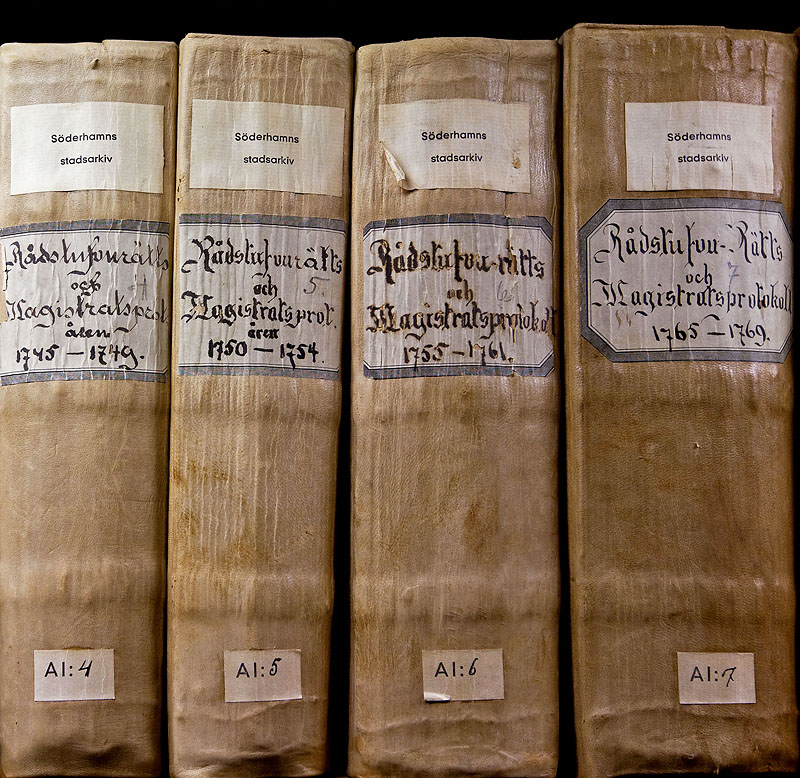 Söderhamns
stadsarkiv
Rådstufvurätts
och
Magistratsprot.
åren
1745 — 1749.
AI: 4
Söderhamns
stadsarkiv
Rådstufvurätts
5
och
Magistratsprot.
åren
1750 — 1754.
AI: 5
Söderhamns
stadsarkiv
Rådstufvu-rätts
och 6
Magistratsprotokoll
1755 — 1761.
AI: 6
Söderhamns
stadsarkiv
Rådstufvu-Rätts
och 7
Magistratsprotokoll
1765 — 1769.
AI: 7